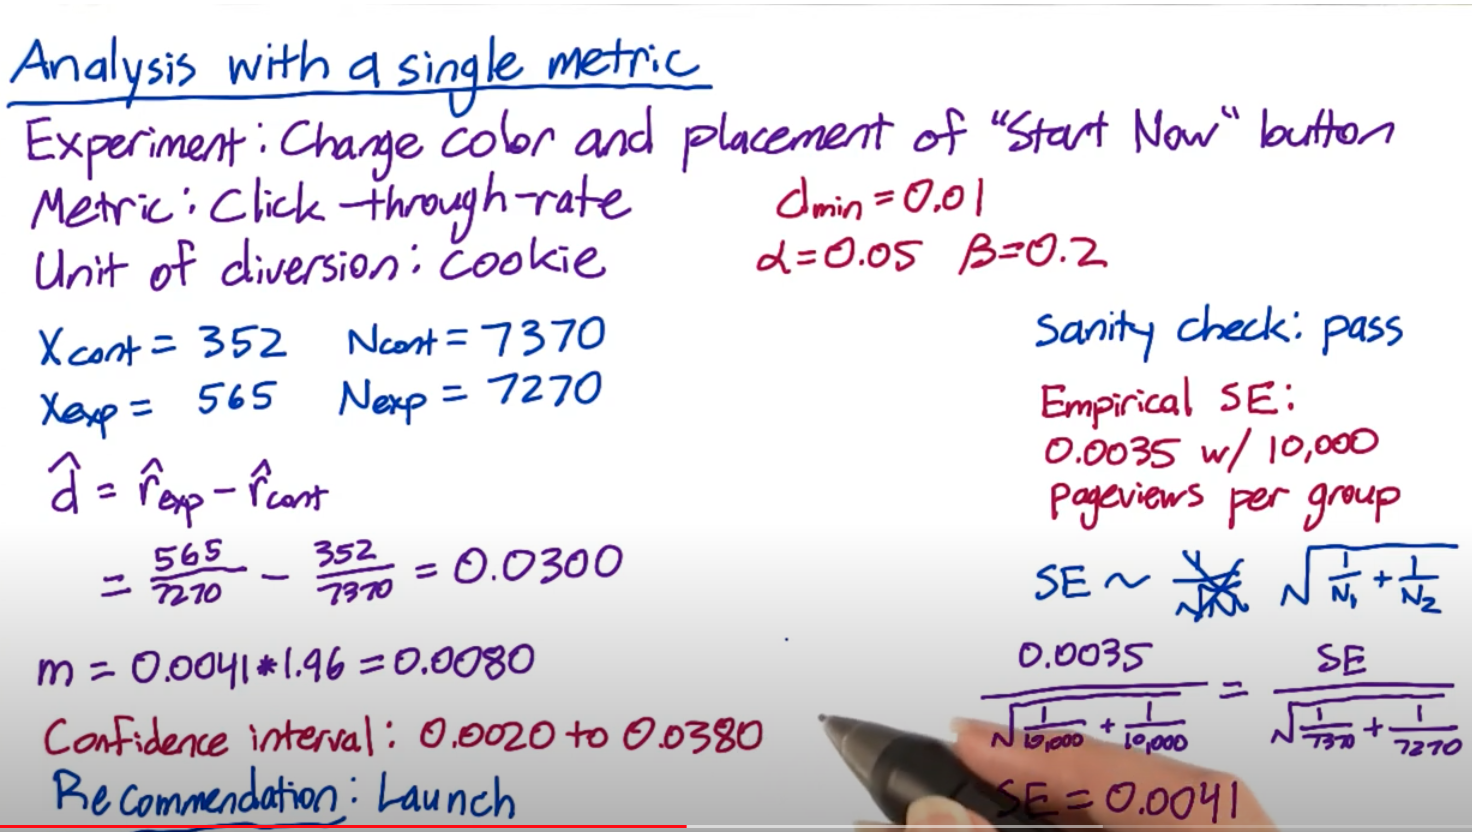 Analysis with a single metric
Experiment: Change color and placement of "Start Now" button
Metric: Click-through-rate
Unit of diversion: cookie
dmin = 0.01
α = 0.05 β = 0.2
Xcont = 352 Ncont = 7370
Xexp = 565 Nexp = 7270
d̂ = r̂exp - r̂cont
= 565/7270 - 352/7370 = 0.0300
m = 0.0041*1.96 = 0.0080
Confidence interval: 0.0020 to 0.0380
Recommendation: Launch
Sanity check: pass
Empirical SE:
0.0035 w/ 10,000
pageviews per group
SE ~ √(1/N1 + 1/N2)
0.0035/√(1/10,000 + 1/10,000) = SE/√(1/7370 + 1/7270)
SE = 0.0041